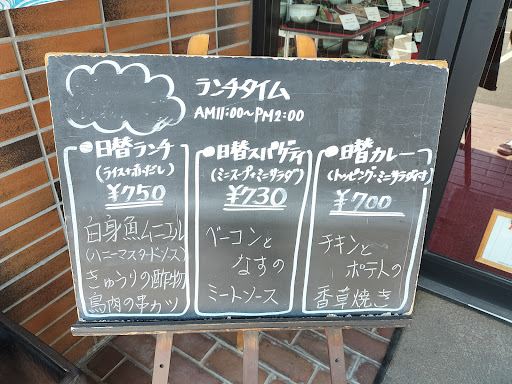 ランチタイム
AM11:00〜PM2:00
●日替ランチ
(ライス・赤だし)
¥750
白身魚ムニエル
(ハニーマスタードソース)
きゅうりの酢物
鳥肉の串カツ
●日替スパゲティ
(ミニスープ・ミニサラダ)
¥730
ベーコンと
なすの
ミートソース
●日替カレー
(トッピング・ミニサラダ付)
¥700
チキンと
ポテトの
香草焼き